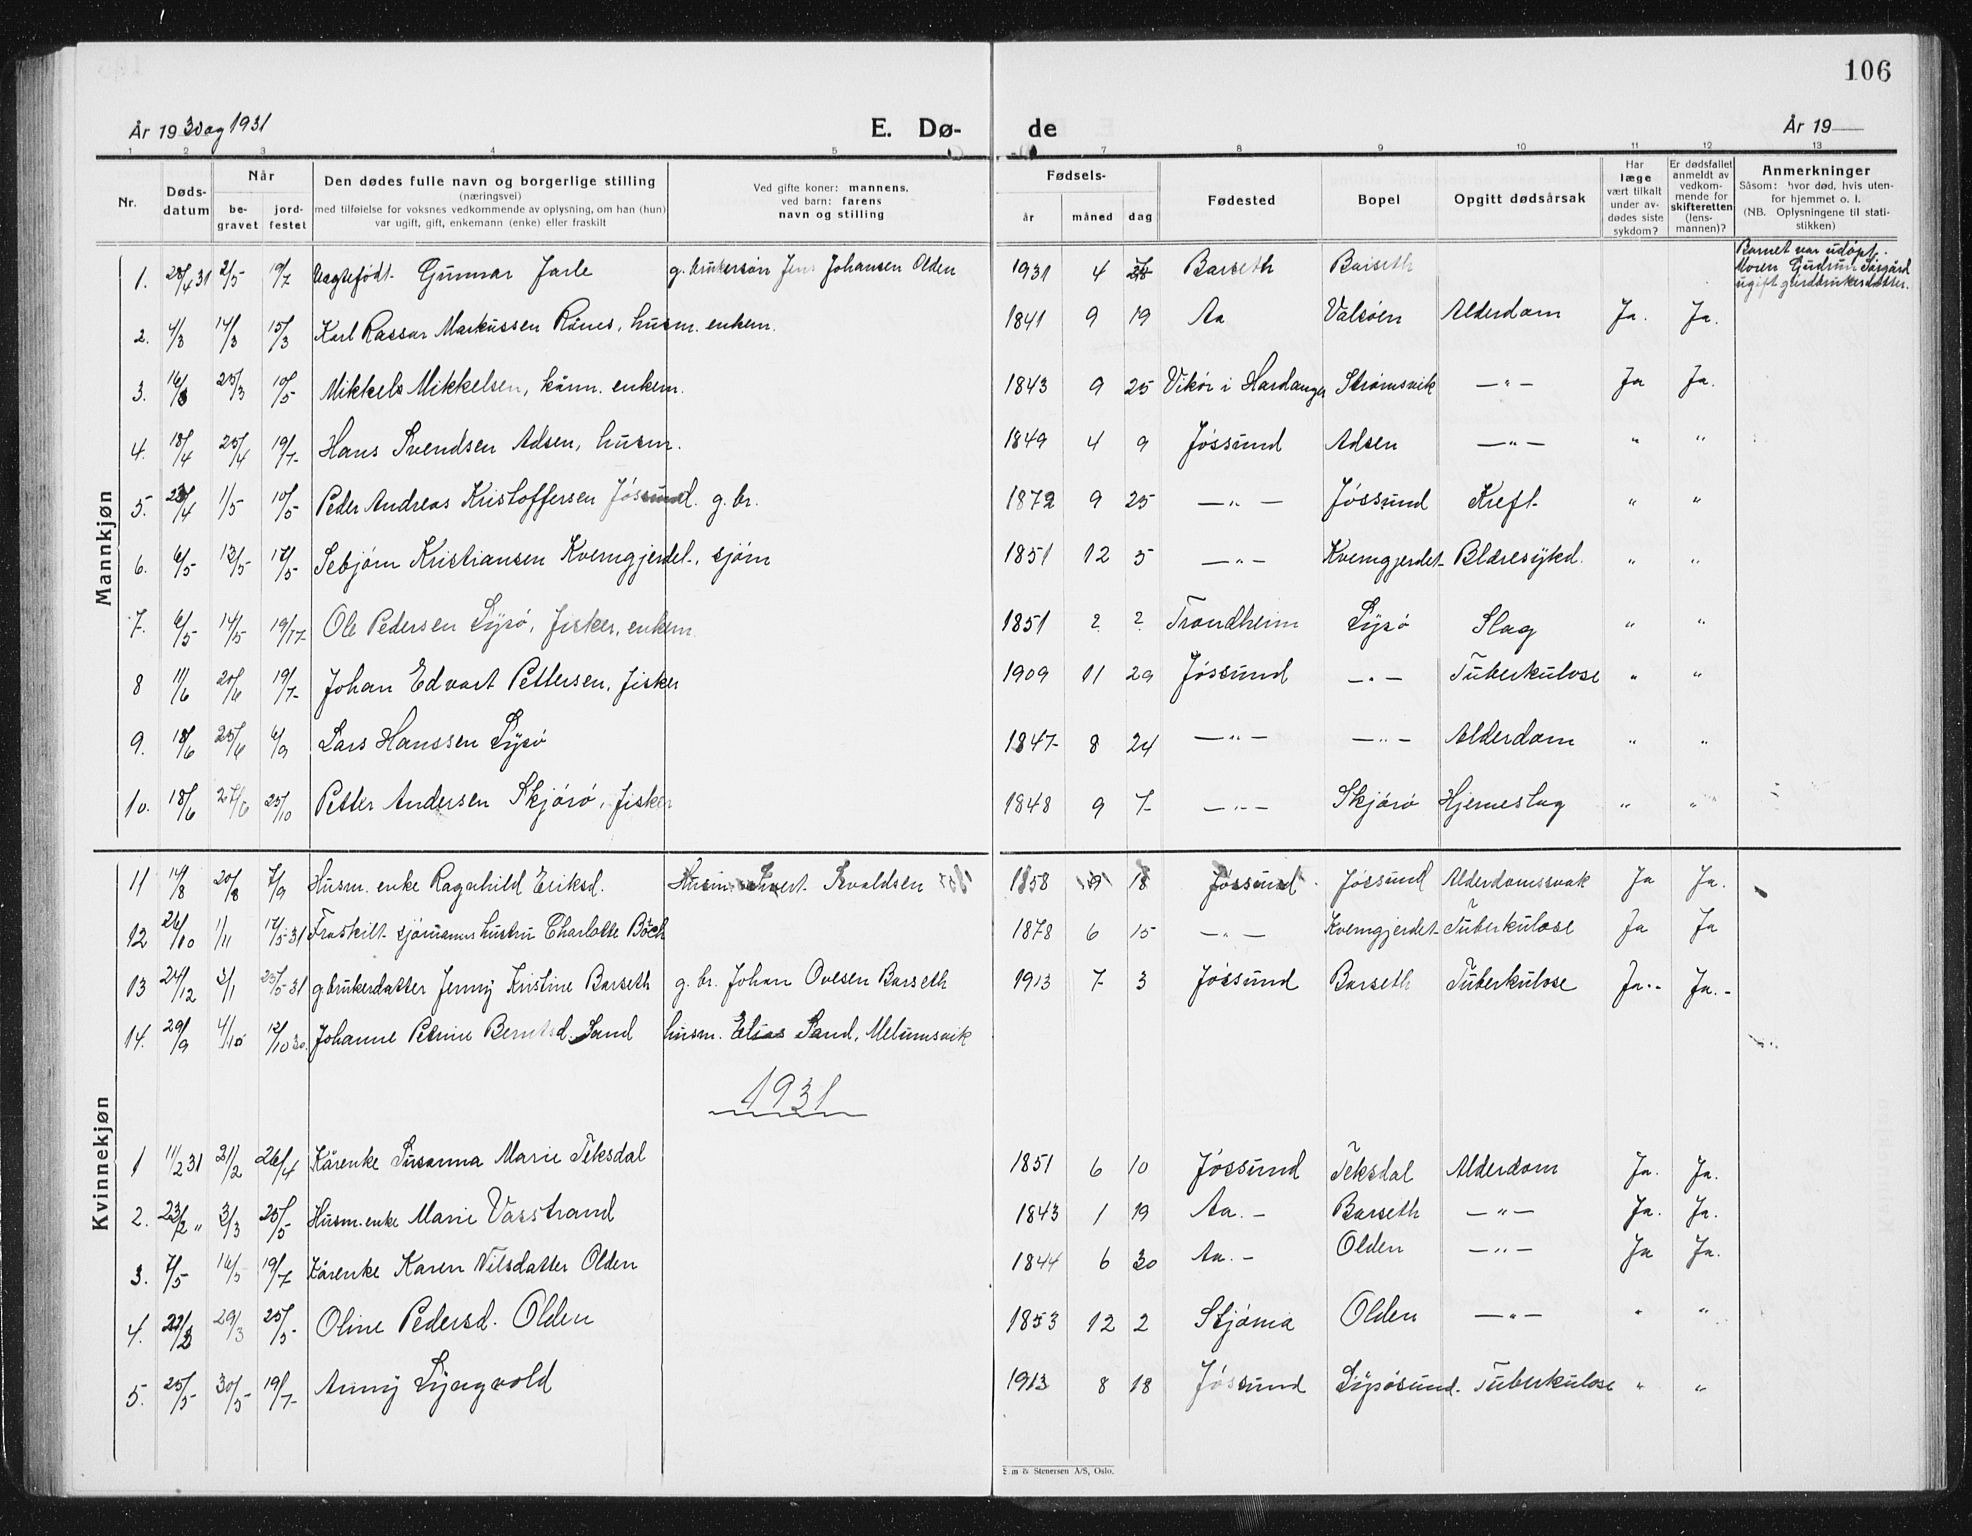 106
År 1930 og 1931
E. Dø- de
År 19
1 2 3 4 5 7 8 9 10 11 12 13
Nr. Døds-datum Når be-gravet jord-festet Den dødes fulle navn og borgerlige stilling (næringsvei) med tilføielse for voksnes vedkommende av oplysning, om han (hun) var ugift, gift, enkemann (enke) eller fraskilt Ved gifte koner: mannens, ved barn: farens navn og stilling Fødsels- år måned dag Fødested Bopel Opgitt dødsårsak Har læge vært tilkalt under av-dødes siste sykdom? Er dødsfallet anmeldt av vedkom-mende for skifteretten (lens-mannen)? Anmerkninger Såsom: hvor død, hvis uten-for hjemmet o. l. (NB. Oplysningene til stati-stikken)
Mannkjøn
1. 28/4 31 2/5 19/7 Uegtefødt Gunnar Jarle g. brukersøn Jens Johansen Olden 1931 4 Barseth Barseth Barnet var udøpt. Moren Gudrun ugift gårdbrukerdatter.
2. 4/3 14/3 15/3 Karl Rassar Markussen Rønes, husm. enkem. 1841 9 19 Aa Valsøen Alderdom Ja. Ja.
3. 16/3 25/3 10/5 Mikkels Mikkelsen, kårm. enkem. 1843 9 25 Vikør i Hardanger Strømsvik —"— Ja Ja.
4. 18/4 25/4 19/7 Hans Svendsen Adsen, husm. 1849 4 9 Jøssund Adsen —"— " "
5. 23/4 1/5 10/5 Peder Andreas Kristoffersen Jøssund. g. br. 1872 9 25 —"— Jøssund Kreft " "
6. 6/5 13/5 17/5 Sebjørn Kristiansen Kverngjerdet, sjøm 1851 12 5 —"— Kverngjerdet Blæresykd. " "
7. 6/5 14/5 19/7 Ole Pedersen Lysø, fisker, enkem. 1851 ? ? Trondheim Lysø Slag " "
8 11/6 20/6 19/7 Johan Edvart Pettersen, fisker 1909 11 29 Jøssund —"— Tuberkulose " "
9. 18/6 25/6 6/9 Lars Hanssen Lysø 1847 8 24 —"— —"— Alderdom " "
10. 18/6 27/6 25/10 Petter Andersen Skjørø, fisker 1848 9 7 —"— Skjørø Hjerneslag " "
Kvinnekjøn
11 14/8 20/8 7/9 Husm. enke Ragnhild Eriksd. Husm. Sivert Isvaldsen 1858 9 18 Jøssund Jøssund Alderdomssvak Ja Ja.
12 26/10 1/11 17/5 31 Fraskilt sjømanns hustru Charlotte Böch 1878 6 15 —"— Kverngjerdet Tuberkulose Ja Ja
13 24/12 3/1 25/5 31 g. brukerdatter Jenny Kristine Barseth g. br. Johan Ovesen Barseth 1913 7 3 Jøssund Barseth Tuberkulose Ja Ja
14. 29/9 4/10 12/10 30. Johanne Petrine Berntsd. Sand husm. Elias Sand, Melumsvik
1931
1 11/2 31 21/2 26/4 Kårenke Susanna Marie Teksdal 1851 6 10 Jøssund Teksdal Alderdom Ja. Ja.
2. 23/2 " 3/3 25/5 Husm. enke Marie Vasstrand 1843 1 19 Aa. Barseth —"— Ja. Ja.
3. 7/5 16/5 19/7 Kårenke Karen Nilsdatter Olden 1844 6 30 Aa. Olden —"— Ja Ja.
4. 22/3 29/3 25/5 Oline Pedersd. Olden 1853 12 2 Stjørna Olden —"— " "
5. 25/5 30/5 19/7 Anny Lyngvold 1913 8 18 Jøssund Lysøsund Tuberkulose " "
& Stenersen A/S, Oslo.